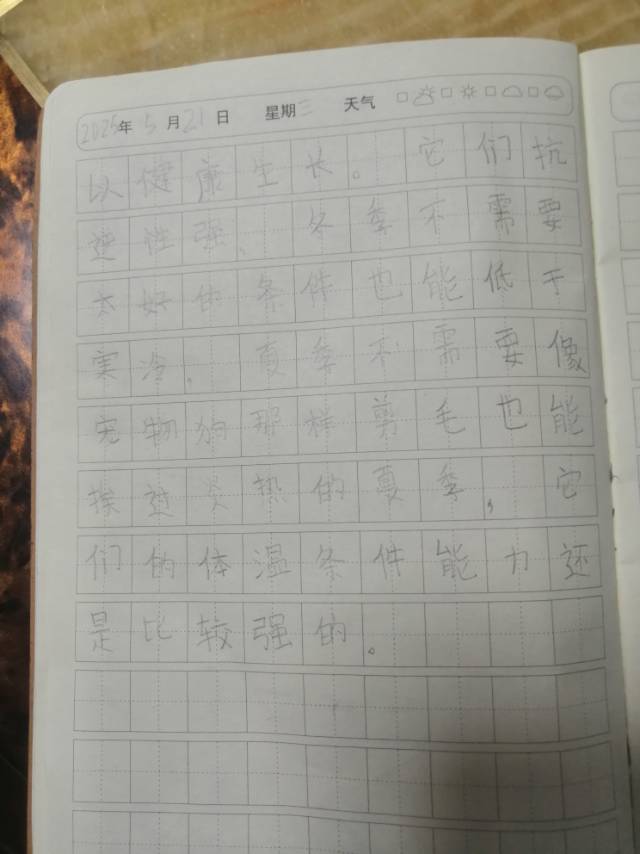 2025年5月21日 星期三 天气
以健康生长。它们抗
逆性强、冬季不需要
太好的条件也能低于
寒冷,夏季不需要像
宠物狗那样剪毛也能
挨过炎热的夏季,它
们的体温条件能力还
是比较强的。